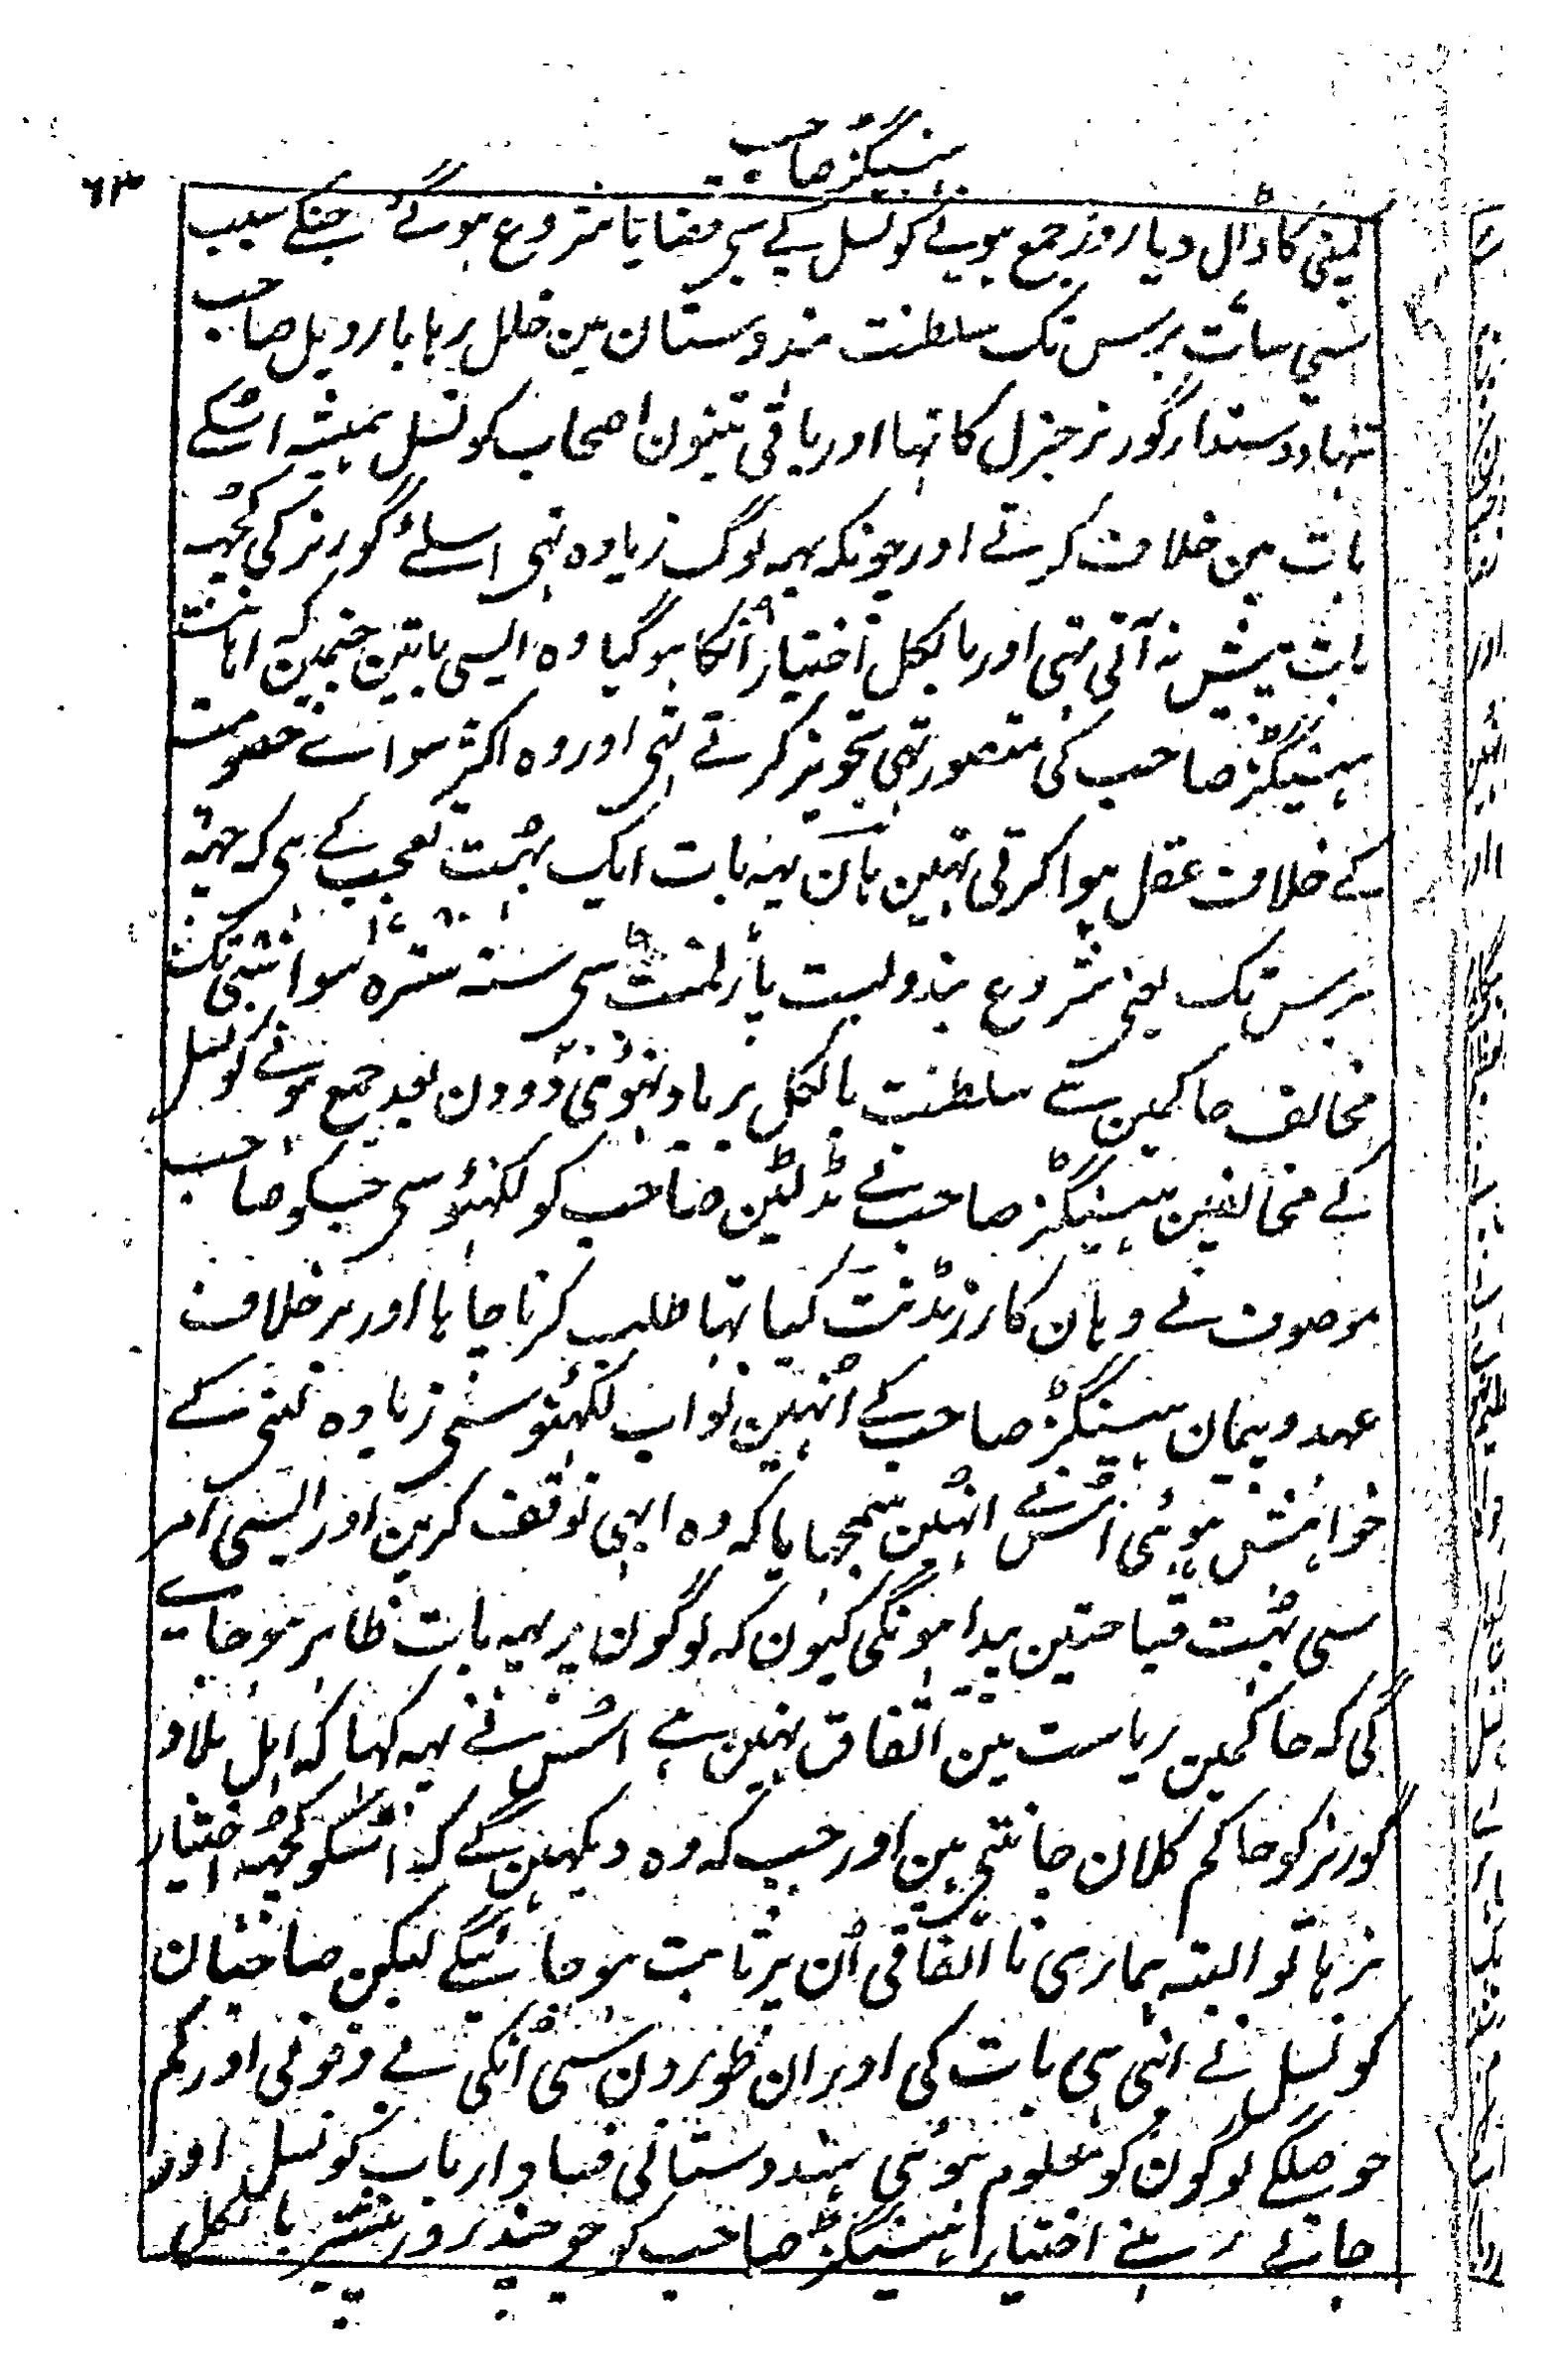 ہسٹینگز صاحب
٦٣
کمپنی کا ڈال دیا روز جمع ہونیے کونسل کے سی قضایا شروع ہوگئے جنکے سبب
سی سات برس تک سلطنت ہندوستان مین خلل رہا بارویل صاحب
تنہا دوستدار گورنر جنرل کا تہا اور باقی تینون اصحاب کونسل ہمیشہ اسکے
بات مین خلاف کرتے اور چونکہ یہہ لوگ زیادہ تہی اسلئے گورنر کی کچہہ
بات پیش نہ آتی تہی اور بالکل اختیار انکا ہوگیا وہ ایسی باتین جنمین کہ اہانت
ہسٹینگز صاحب کی متصور تہی تجویز کرتے تہی اور وہ اکثر سوا اسے خصومت
کے خلاف عقل ہوا کرتی تہین ہان یہہ بات ایک بہت تعجب کے ہی کہ چہہ
برس تک یعنی شروع بندوبست پارلمنٹ سی سنہ سترہ سو اسی تک
مخالف حاکمین سے سلطنت بالکل برباد نہوئی دو دن بعد جمع ہونے کونسل
کے مخالفین ہسٹینگز صاحب نے مڈلٹین صاحب کو لکہنؤ سی جسکو صاحب
موصوف نے وہان کا رزیڈنٹ کیا تہا طلب کرنا چاہا اور برخلاف
عہد و پیمان ہسٹینگز صاحب کے انہین نواب لکہنؤ سی زیادہ لینی کے
خواہش ہوئی اسنے انہین سمجہایا کہ وہ ابہی توقف کرین اور ایسی امر
سی بہت قباحتین پیدا ہونگی کیون کہ لوگون پر یہہ بات ظاہر ہو جاے
گی کہ حاکمین ریاست مین اتفاق نہین ہے اسنے یہہ کہا کہ اہل بلاد
گورنر کو حاکم کلان جانتی ہین اور جب کہ وہ دیکہین گے کہ اسکو کچہہ اختیار
نرہا تو البتہ ہماری نا اتفاقی ان پر ثابت ہو جائیگے لیکن صاحبان
کونسل نے اپنی ہی بات کی اور ان طورون سی انکی بے وقوفی اور کم
حوصلگے لوگون کو معلوم ہوئی ہندوستانی فساد ارباب کونسل اور
جانے رہنے اختیار ہسٹینگز صاحب کو جو چند روز پیشتر بالکل